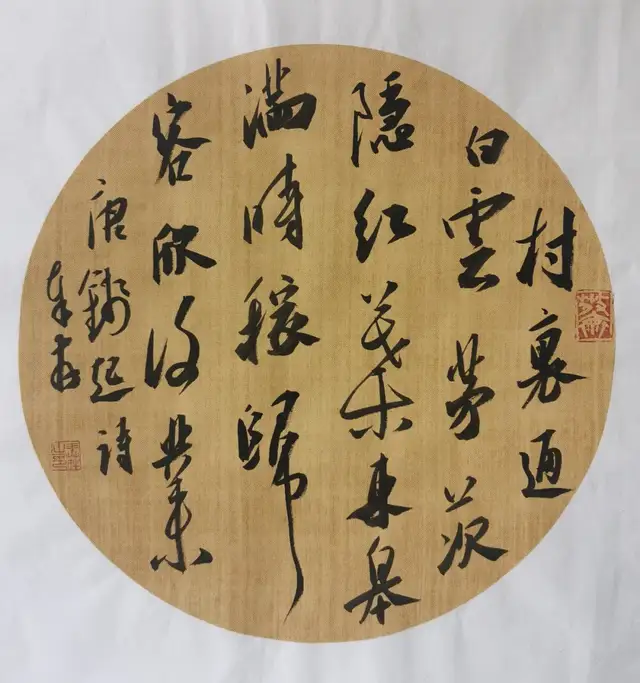 村裏通
白雲茅茨
隱紅葉東皋
滿時稼歸
客欣復業
唐錢起詩